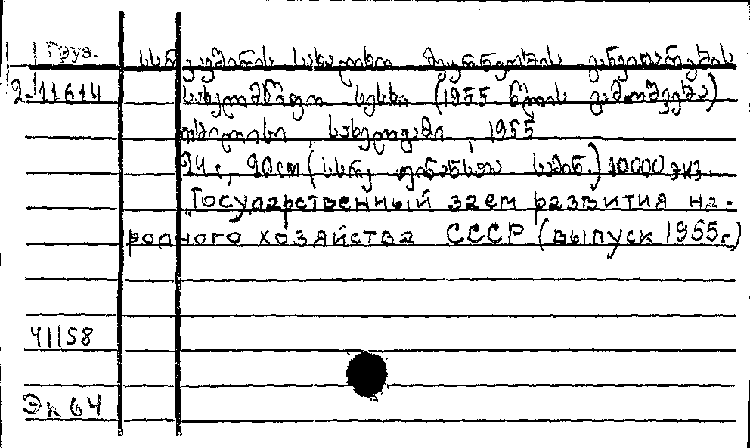 Груз.
სსრ კავშირის სახალხო მეურნეობის განვითარების
2-11614 სახელმწიფო სესხი (1955 წლის გამოშვება)
თბილისი, სახელგამი, 1955
24 с, 20 см (სსრკ ფინანსთა სამინ.) 10000 экз
"Государственный заем развития на-
родного хозяйства СССР (выпуск 1955г)
41158
Эк 64